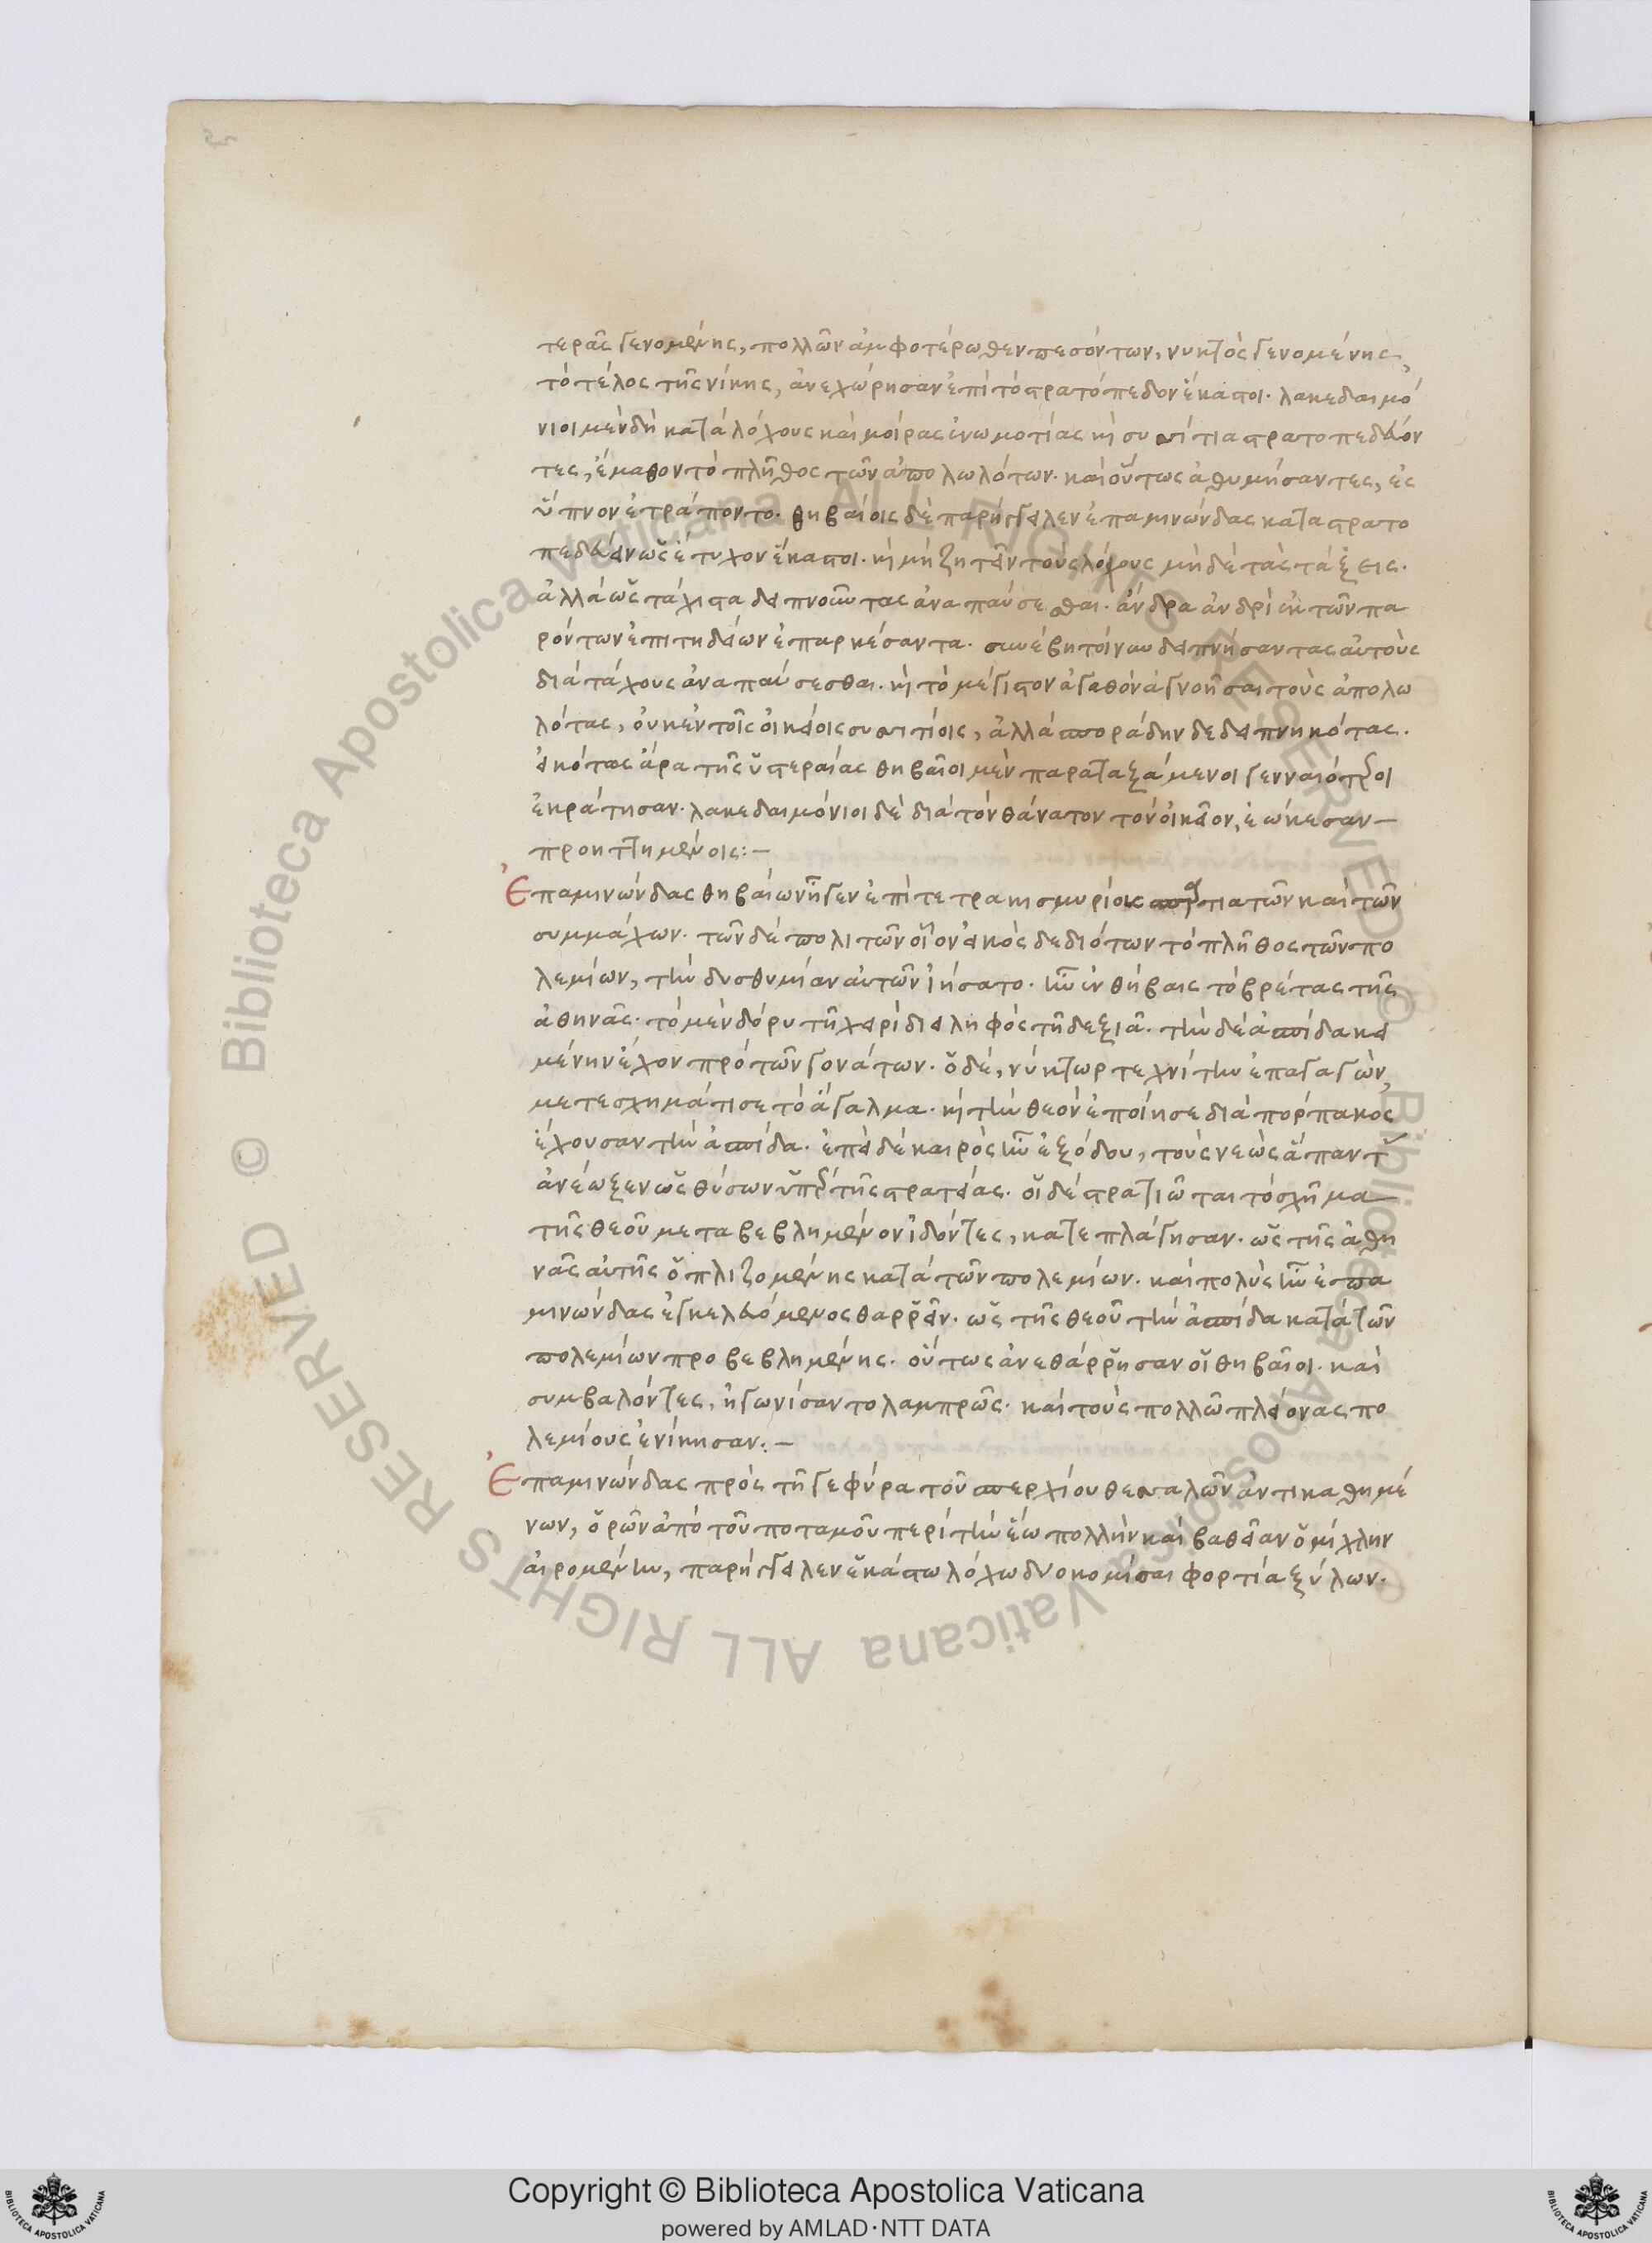 τερᾶς γενομένης, πολλῶν ἀμφοτέρωθεν πεσόντων, νυκτὸς γενομένης,
τὸ τέλος τῆς νίκης, ἀνεχώρησαν ἐπὶ τὸ στρατόπεδον ἕκαστοι. λακεδαιμό
νιοι μὲν δὴ κατὰ λόχους καὶ μοίρας ἐνωμοτίας κỳ συσσίτια στρατοπεδεύον
τες, ἔμαθον τὸ πλῆθος τῶν ἀπολωλότων. καὶ οὕτως ἀθυμήσαντες, ἐς
ὕπνον ἐτράποντο. θηβαίοις δὲ παρήγγειλεν ἐπαμινώνδας καταστρατο
πεδεύειν ὡς ἔτυχον ἕκαστοι. καὶ μὴ ζητεῖν τοὺς λόχους μὴ δὲ τὰς τάξεις.
ἀλλὰ ὡς τάχιστα δειπνοῦντας ἀναπαύσεσθαι. ἄνδρα ἀνδρὶ ἐκ τῶν πα
ρόντων ἐπιτηδείων ἐπαρκέσαντα. συνέβη τοίνυν δειπνήσαντας αὐτοὺς
διὰ τάχους ἀναπαύσεσθαι. καὶ τὸ μέγιστον ἀγαθὸν ἀγνοῆσαι τοὺς ἀπολω
λότας, οὐκ ἐν τοῖς οἰκείοις συσσιτίοις, ἀλλὰ σποράδην δεδειπνηκότας.
εἰκότως ἄρα τῆς ὑστεραίας θηβαῖοι μὲν παραταξάμενοι γενναιότεροι
ἐκράτησαν. λακεδαιμόνιοι δὲ διὰ τὸν θάνατον τὸν οἰκεῖον, ἐώκεσαν
προηττημένοις:–
Ἐπαμινώνδας θηβαίων ἦγεν ἐπὶ τετρακισμυρίους σπαρτιατῶν καὶ τῶν
συμμάχων. τῶν δὲ πολιτῶν οἷον εἰκὸς δεδιότων τὸ πλῆθος τῶν πο
λεμίων, τὴν δυσθυμίαν αὐτῶν ἰήσατο. ἦν ἐν θήβαις τὸ βρέτας τῆς
ἀθηνᾶς. τὸ μὲν δόρυ τῇ χειρὶ διειληφός τῇ δεξιᾷ. τὴν δὲ ἀσπίδα κει
μένην ἔχον πρὸ τῶν γονάτων. ὁ δὲ, νύκτωρ τεχνίτην ἐπαγαγὼν,
μετεσχημάτισε τὸ ἄγαλμα. καὶ τὴν θεὸν ἐποίησε διὰ πόρπακος
ἔχουσαν τὴν ἀσπίδα. ἐπεὶ δὲ καιρὸς ἦν ἐξόδου, τοὺς νεὼς ἅπαντας
ἀνέωξεν ὡς θύσων ὑπὲρ τῆς στρατείας. οἱ δὲ στρατιῶται τὸ σχῆμα
τῆς θεοῦ μεταβεβλημένον ἰδόντες, κατεπλάγησαν. ὡς τῆς ἀθη
νᾶς αὐτῆς ὁπλιζομένης κατὰ τῶν πολεμίων. καὶ πολὺς ἦν ἐπα
μινώνδας ἐγκελευόμενος θαρρεῖν. ὡς τῆς θεοῦ τὴν ἀσπίδα κατὰ τῶν
πολεμίων προβεβλημένης. οὕτως ἀνεθάρρησαν οἱ θηβαῖοι. καὶ
συμβαλόντες, ἠγωνίσαντο λαμπρῶς. καὶ τοὺς πολλῷ πλείονας πο
λεμίους ἐνίκησαν:–
Ἐπαμινώνδας πρὸς τῇ γεφύρα τοῦ σπερχίου θεσσαλῶν ἀντικαθημέ
νων, ὁρῶν ἀπὸ τοῦ ποταμοῦ περὶ τὴν ἕω πολλὴν καὶ βαθεῖαν ὁμίχλην
αἰρομένην, παρήγγειλεν ἑκάστω λόχω δύο κομίσαι φορτία ξύλων.
© Biblioteca Apostolica Vaticana ALL RIGHTS RESERVED © Biblioteca Apostolica Vaticana ALL RIGHTS RESERVED
Copyright © Biblioteca Apostolica Vaticana
powered by AMLAD·NTT DATA
BIBLIOTECA APOSTOLICA VATICANA
BIBLIOTECA APOSTOLICA VATICANA